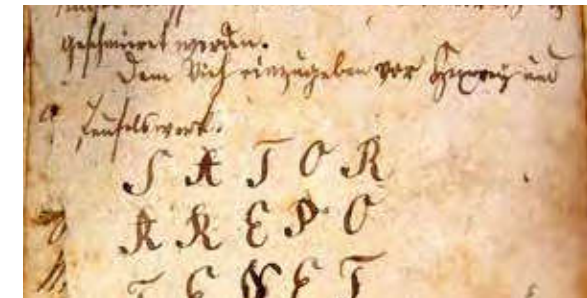 geschmieret werden.
Dem Vieh einzugeben vor Hexerey und
Teufelswerk.
S A T O R
A R E P O
T E N E T